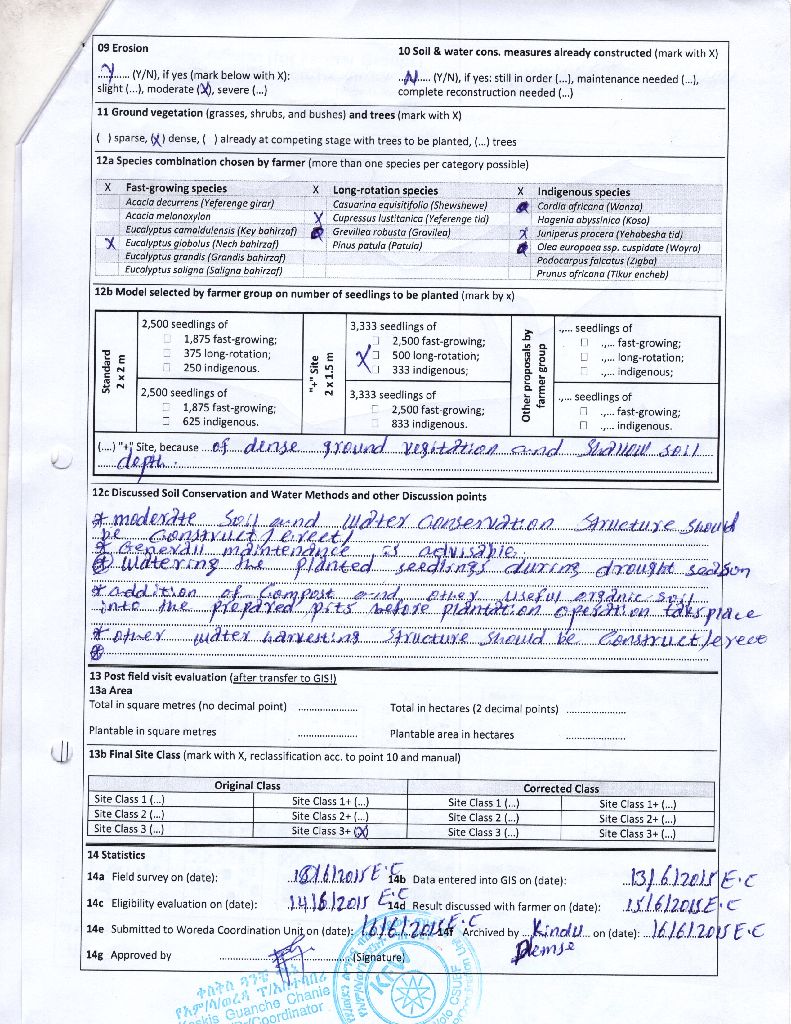 09 Erosion
10 Soil & water cons. measures already constructed (mark with X)
..Y...... (Y/N), if yes (mark below with X):
..N..... (Y/N), if yes: still in order (...), maintenance needed (...),
slight (...), moderate (X), severe (...)
complete reconstruction needed (...)
11 Ground vegetation (grasses, shrubs, and bushes) and trees (mark with X)
( ) sparse, (X) dense, ( ) already at competing stage with trees to be planted, (...) trees
12a Species combination chosen by farmer (more than one species per category possible)
X Fast-growing species X Long-rotation species X Indigenous species
Acacia decurrens (Yeferenge girar) Casuarina equisitifolia (Shewshewe) Cordia africana (Wanza)
Acacia melanoxylon X Cupressus lustitanica (Yeferenge tid) Hagenia abyssinica (Koso)
Eucalyptus camaldulensis (Key bahirzaf) Grevillea robusta (Gravilea) X Juniperus procera (Yehabesha tid)
X Eucalyptus globolus (Nech bahirzaf) Pinus patula (Patula) Olea europaea ssp. cuspidate (Woyra)
Eucalyptus grandis (Grandis bahirzaf) Podocarpus falcatus (Zigba)
Eucalyptus saligna (Saligna bahirzaf) Prunus africana (Tikur encheb)
12b Model selected by farmer group on number of seedlings to be planted (mark by x)
Standard
2 x 2 m
2,500 seedlings of
1,875 fast-growing;
375 long-rotation;
250 indigenous.
2,500 seedlings of
1,875 fast-growing;
625 indigenous.
"+" Site
2 x 1.5 m
3,333 seedlings of
2,500 fast-growing;
X 500 long-rotation;
333 indigenous;
3,333 seedlings of
2,500 fast-growing;
833 indigenous.
Other proposals by
farmer group
.,... seedlings of
.,... fast-growing;
.,... long-rotation;
.,... indigenous;
.,... seedlings of
.,... fast-growing;
.,... indigenous.
(....) "+" Site, because of dense ground vegitation and Shallow soil
depth.
12c Discussed Soil Conservation and Water Methods and other Discussion points
* moderate Soil and Water Conservation Structure should
be Construct/erect/
* Generall maintenance is advisable.
* Watering the planted seedlings during drought season
* addition of Compost and other useful organic soil
into the prepared pits before plantation operation take place
* other water harvesting Structure should be Construct/erect
*
13 Post field visit evaluation (after transfer to GIS!)
13a Area
Total in square metres (no decimal point) .................... Total in hectares (2 decimal points) ....................
Plantable in square metres .................... Plantable area in hectares ....................
13b Final Site Class (mark with X, reclassification acc. to point 10 and manual)
Original Class Corrected Class
Site Class 1 (...) Site Class 1+ (...) Site Class 1 (...) Site Class 1+ (...)
Site Class 2 (...) Site Class 2+ (...) Site Class 2 (...) Site Class 2+ (...)
Site Class 3 (...) Site Class 3+ (X) Site Class 3 (...) Site Class 3+ (...)
14 Statistics
14a Field survey on (date): /6/2015 E.C 14b Data entered into GIS on (date): 13/6/2015 E.C
14c Eligibility evaluation on (date): 14/6/2015 E.C 14d Result discussed with farmer on (date): 15/6/2015 E.C
14e Submitted to Woreda Coordination Unit on (date): 16/6/2015 E.C 14f Archived by Kindu on (date): 16/6/2015 E.C
Demse
14g Approved by .................... (Signature)
KFW
Guanche Chanie
Coordinator